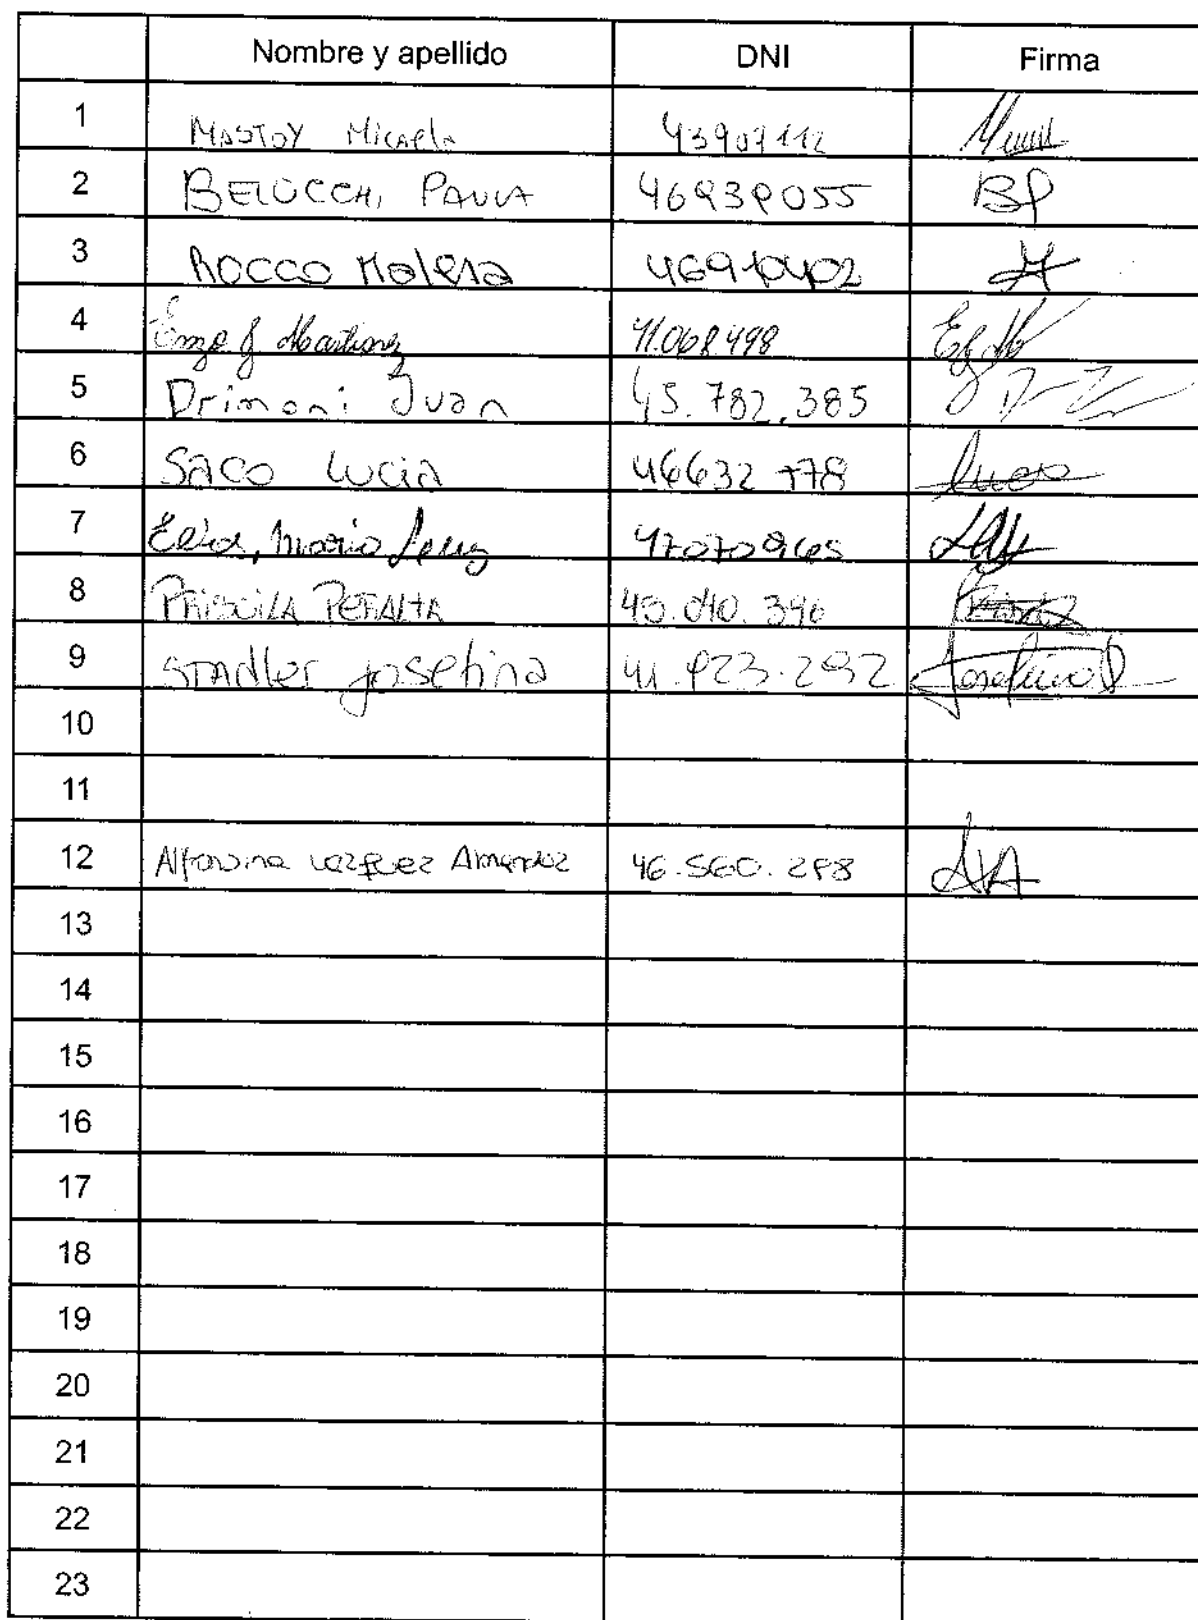 Nombre y apellido DNI Firma
1 MASTOY Micaela 43907112
2 BELUCCHI, PAULA 46939055 BP
3 ROCCO Malena
4 Enzo J Martinez 41.068.498
5 Drimoni Juan 45.782.385
6 SACO LUCIA 46632778
7 Elia, Maria Luz 47070965
8 PRISCILA PERALTA
9 STADLER josefina 41.923.292 Josefina S
10
11
12 Alfonsina Vazquez 46.560.298
13
14
15
16
17
18
19
20
21
22
23